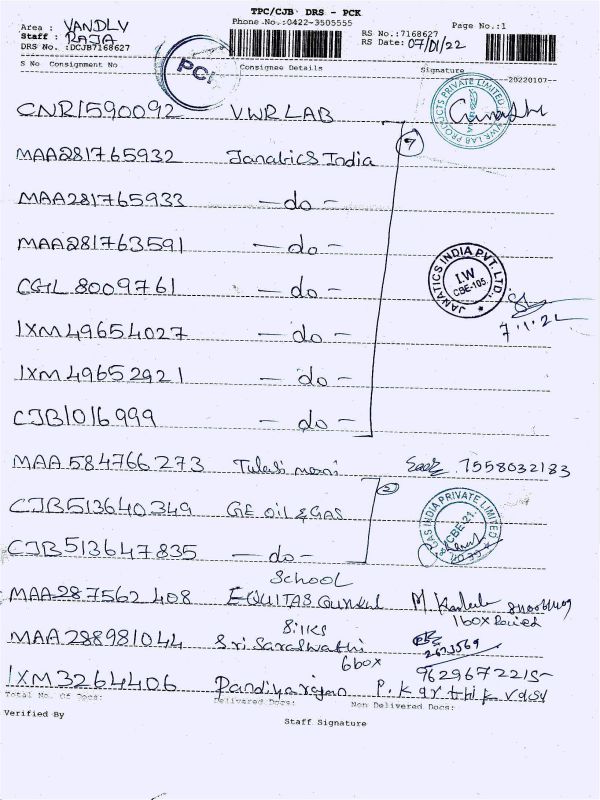 TPC/CJB DRS - PCK
Phone No.:0422-3505555
Page No.:1
Area : VANDLV
Staff : RAJA
DRS No. :DCJB7168627
RS No.:7168627
RS Date: 07/01/22
S No Consignment No Consignee Details Signature
20220107
PCK
CNR1590092 VWR LAB
VWR LAB PRODUCTS PRIVATE LIMITED
7
MAA281765932 Janatics India
MAA281765933 - do -
MAA281763591 - do -
CGL 8009761 - do -
JANATICS INDIA PVT. LTD.,
I.W
CBE-105.
7.1.22
IXM49654027 - do -
IXM49652921 - do -
CJB1016999 - do -
MAA584766273 Tulasi mani 7558032183
CJB513640349 GE oil & Gas
2
GE OIL & GAS INDIA PRIVATE LIMITED
CBE-21.
CJB513647835 - do -
School
MAA287562408 EQUITAS Gurukul M.
1 box
Silks
MAA288981044 Sri Saraswathi
6 box
9629672215
IXM3264406 Pandiyarajan P. Karthik
Total No. Of Docs: Delivered Docs: Non Delivered Docs:
Verified By
Staff Signature